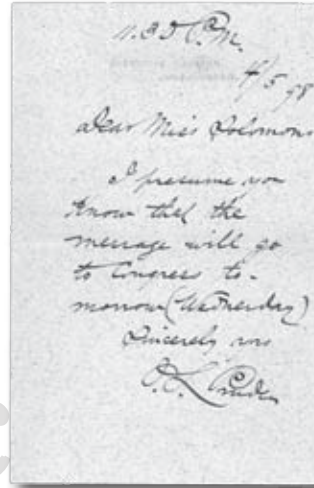 4/5 98
Dear Miss Solomons
I presume you
know that the
message will go
to Congress to-
morrow (Wednesday)
Sincerely yours
O. L. Pruden